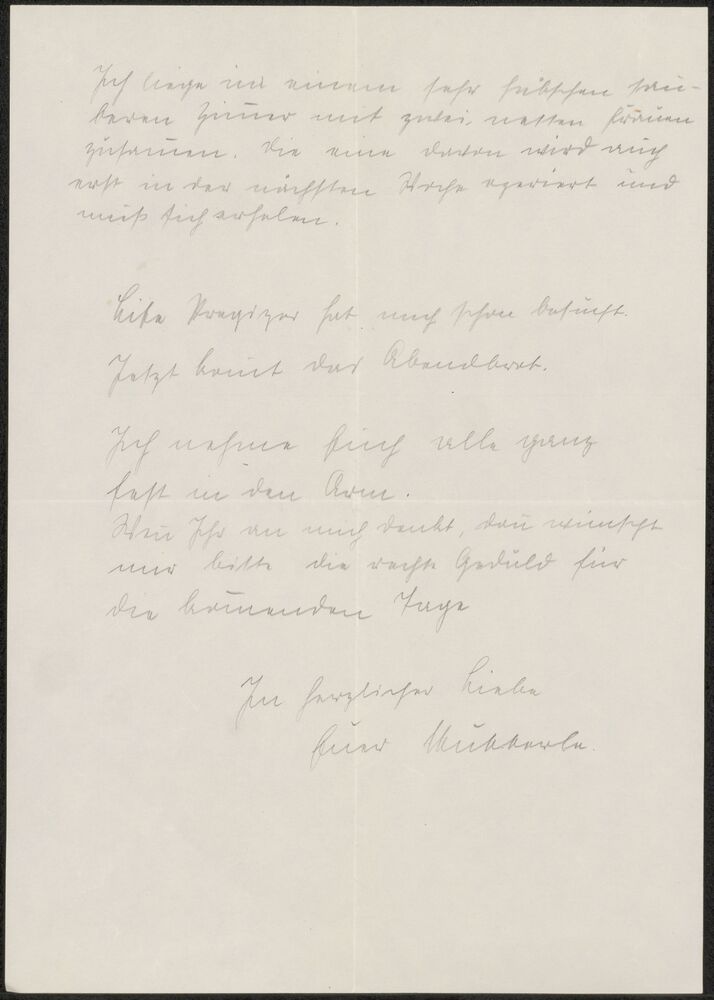 Ich liege in einem sehr hübschen sau-
beren Zim̅er mit zwei netten Frauen
zusam̅en. Die eine davon wird auch
erst in der nächsten Woche operiert und
muß sich erholen.
hat mich schon besucht.
Jetzt kom̅t das Abendbrot.
Ich nehme Euch alle ganz
fest in den Arm.
Wen̅ Ihr an mich denkt, dan̅ wünscht
mir bitte die rechte Geduld für
die kom̅enden Tage
In herzlicher Liebe
Euer Mutterle.